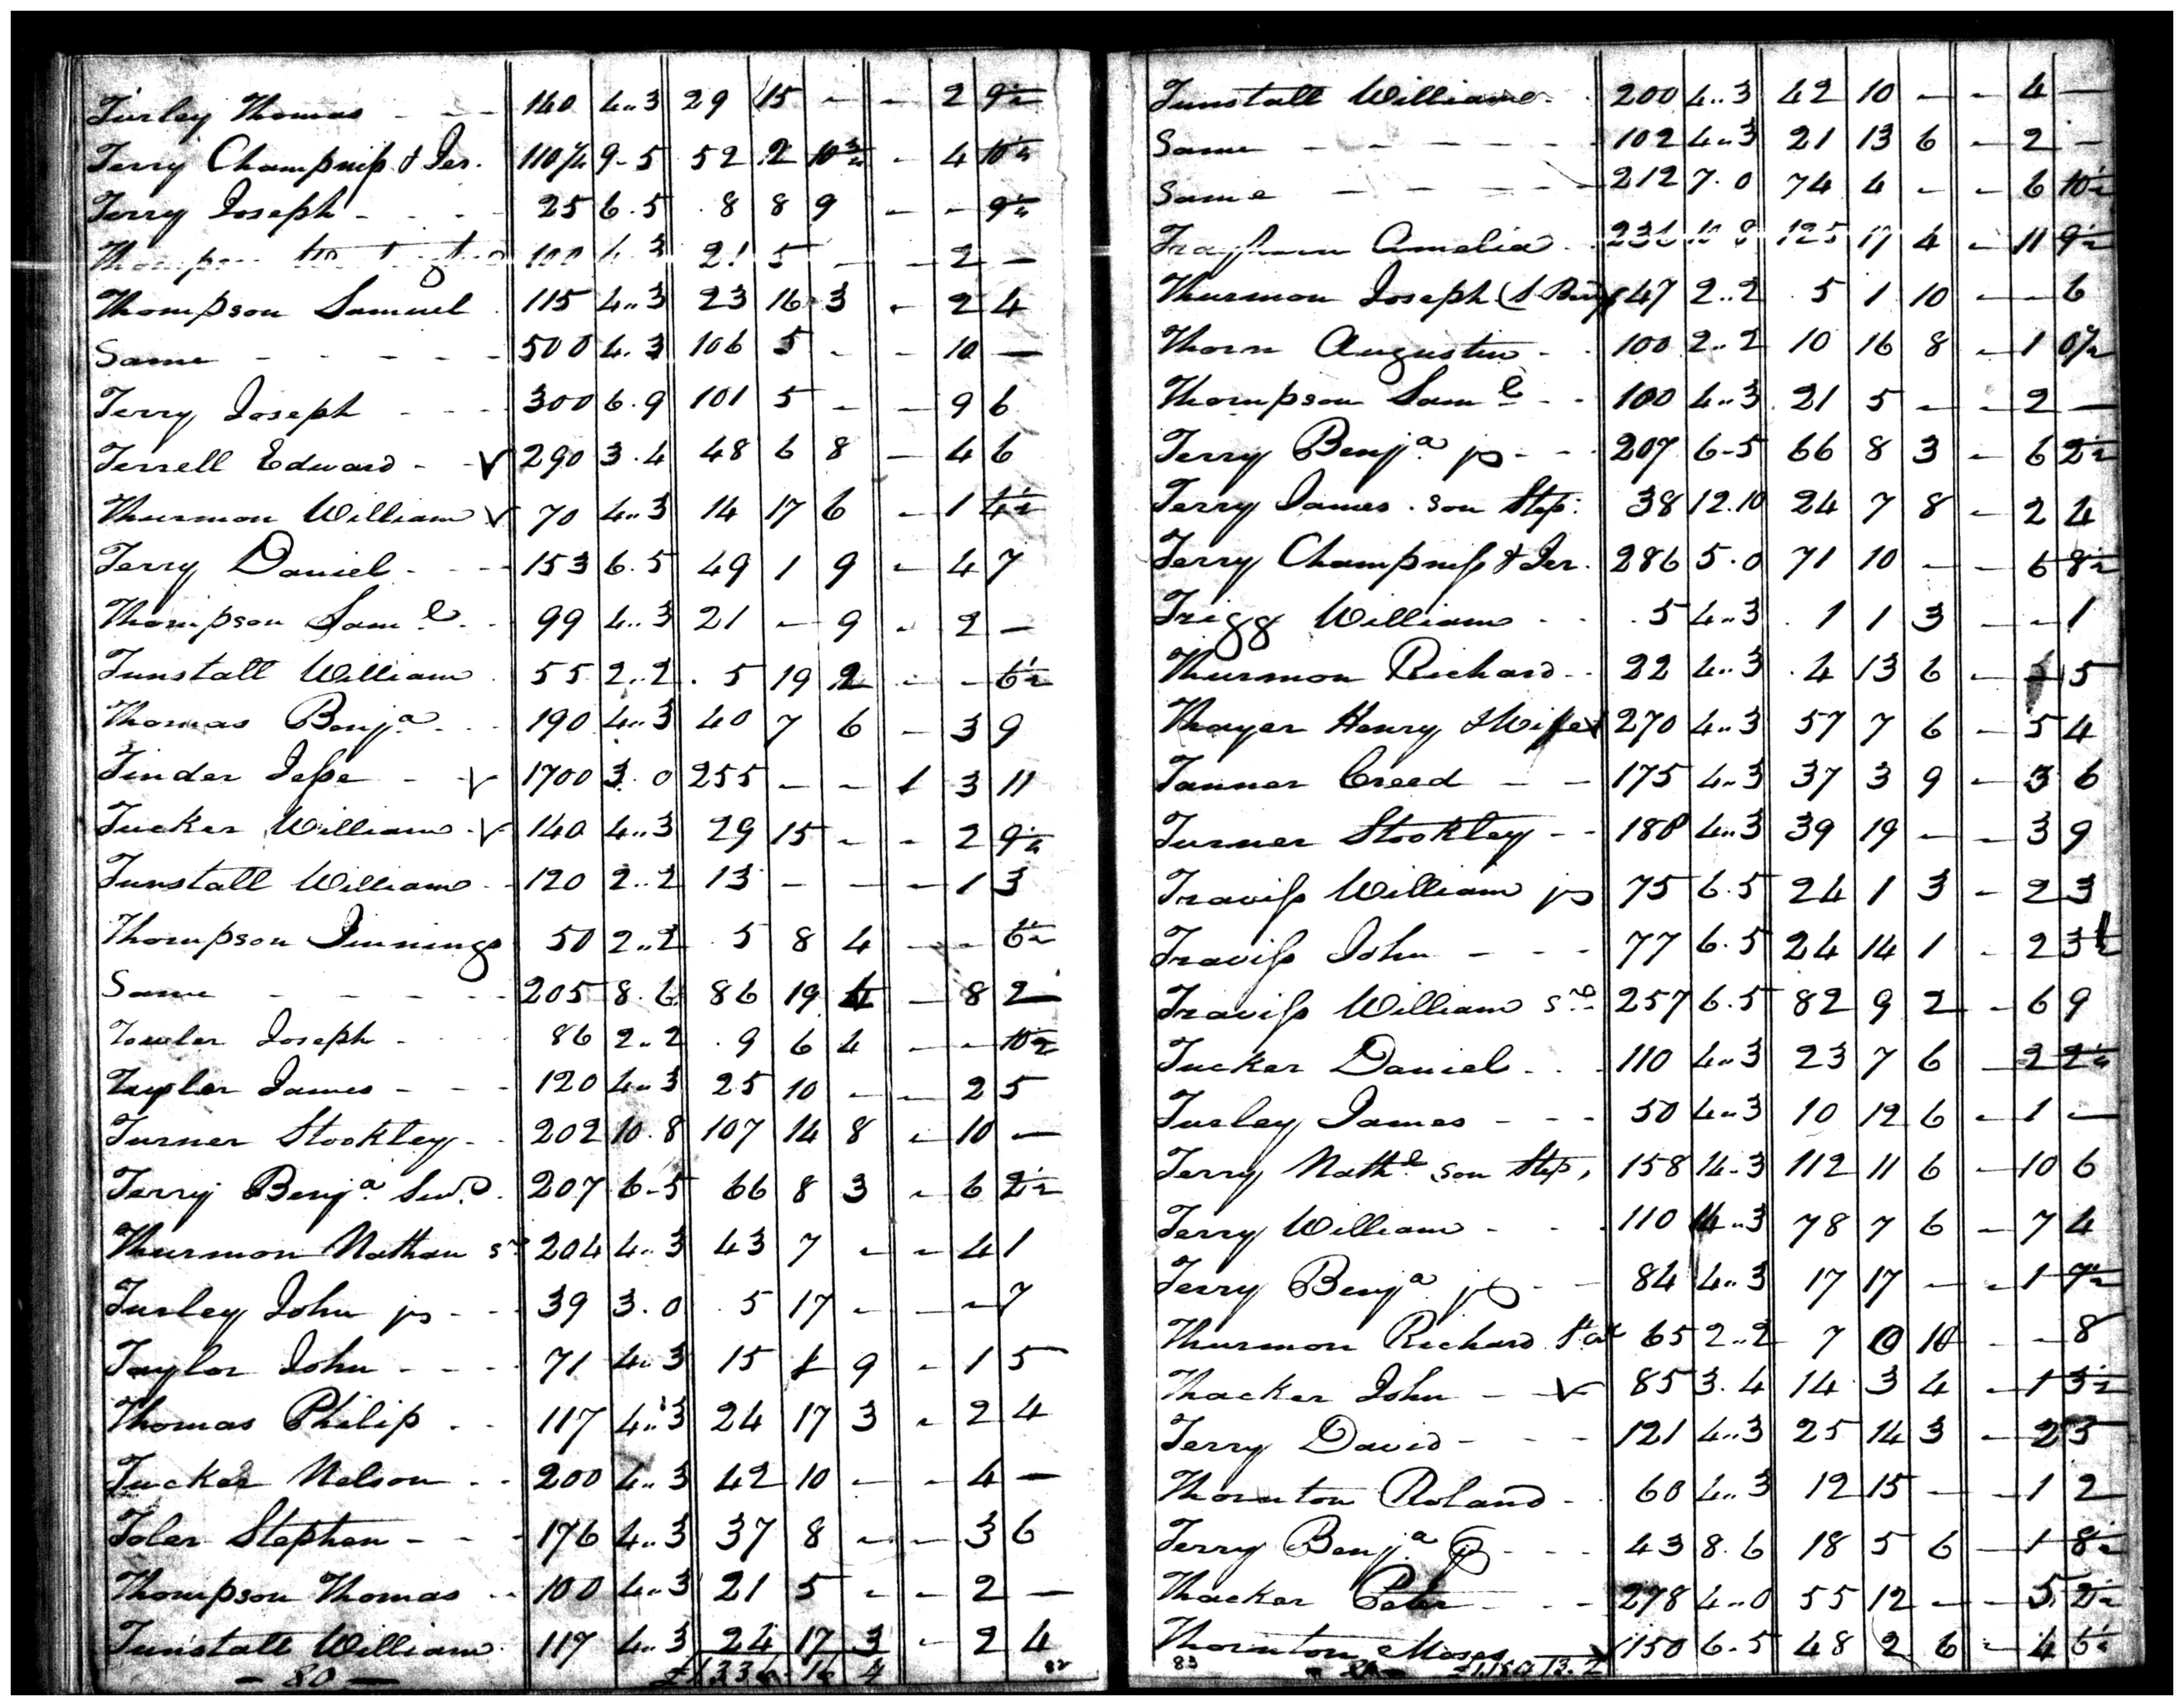 Turley Thomas - - - 140 4..3 29 15 - - 2 9½
Terry Champniss & Jer. 110½ 9-5 52 2 10¾ - 4 10½
Terry Joseph - - - 25 6.5 8 8 9 - - 9½
100 4..3 21 5 - - 2 -
Thompson Samuel 115 4..3 23 16 3 - 2 4
Same - - - - - 500 4..3 106 5 - - 10 -
Terry Joseph - - - 300 6.9 101 5 - - 9 6
Terrell Edward - - √ 290 3.4 48 6 8 - 4 6
Thurmon William √ 70 4..3 14 17 6 - 1 4½
Terry Daniel - - - 153 6.5 49 1 9 - 4 7
Thompson Saml. - 99 4..3 21 - 9 - 2 -
Tunstall William 55 2..2 5 19 2 - - 6½
Thomas Benja. - - 190 4..3 40 7 6 - 3 9
Tinder Jesse - √ 1700 3.0 255 - - 1 3 11
Tucker William - √ 140 4..3 29 15 - - 2 9½
Tunstall William - - 120 2..2 13 - - - 1 3
Thompson Jinnings 50 2..2 5 8 4 - - 6½
Same - - - - - 205 8.6 86 19 4 - 8 2
Towler Joseph - - 86 2..2 9 6 4 - - 10½
Tayler James - - - 120 4..3 25 10 - - 2 5
Turner Stookley - - 202 10.8 107 14 8 - 10 -
Terry Benja. Senr. 207 6-5 66 8 3 - 6 2½
Thurmon Nathan sr 204 4..3 43 7 - - 4 1
Turley John jr - - 39 3.0 5 17 - - - 7
Taylor John - - - - 71 4..3 15 1 9 - 1 5
Thomas Philip - - 117 4..3 24 17 3 - 2 4
Tucker Nelson - - 200 4..3 42 10 - - 4 -
Toler Stephen - - - 176 4..3 37 8 - - 3 6
Thompson Thomas - - 100 4..3 21 5 - - 2 -
Tunstall William 117 4..3 24 17 3 - 2 4
- 80 - £1336. 16 4 82
Tunstall William - 200 4..3 42 10 - - 4 -
Same - - - - - - 102 4..3 21 13 6 - 2 -
Same - - - - - - 212 7.0 74 4 - - 6 10½
Amelia 10 8 125 17 4 - 11 9½
Thurmon Joseph 47 2..2 5 1 10 - - 6
Thorn Augustin - - 100 2..2 10 16 8 - 1 0½
Thompson Saml. - - 100 4..3 21 5 - - 2 -
Terry Benja. jr - - - 207 6-5 66 8 3 - 6 2½
Terry James. son Step: 38 12.10 24 7 8 - 2 4
Terry Champniss & Jer. 286 5.0 71 10 - - 6 8½
Trigg William - - 5 4..3 1 1 3 - - 1
Thurmon Richard - - 22 4..3 4 13 6 - - 5
Thayer Henry & Wife √ 270 4..3 57 7 6 - 5 4
Tanner Creed - - 175 4..3 37 3 9 - 3 6
Turner Stookley - - 188 4..3 39 19 - - 3 9
Traviss William jr 75 6.5 24 1 3 - 2 3
Traviss John - - - 77 6.5 24 14 1 - 2 3½
Traviss William sr. 257 6.5 82 9 2 - 6 9
Tucker Daniel - - 110 4..3 23 7 6 - 2 2½
Turley James - - - 50 4..3 10 12 6 - 1 -
Terry Nathl. son Step, 158 14-3 112 11 6 - 10 6
Terry William - - - 110 14..3 78 7 6 - 7 4
Terry Benja. jr - - 84 4..3 17 17 - - 1 9½
Thurmon Richard 65 2..2 7 0 10 - - 8
Thacker John - √ 85 3.4 14 3 4 - 1 3½
Terry David - - - 121 4..3 25 14 3 - 2 5
Thornton Roland - - 60 4..3 12 15 - - 1 2
Terry Benja. - - - 43 8.6 18 5 6 - 1 8½
Thacker Peter - - - 278 4..0 55 12 - - 5 2½
Thornton Moses √ 150 6.5 48 2 6 - 4 6½
83